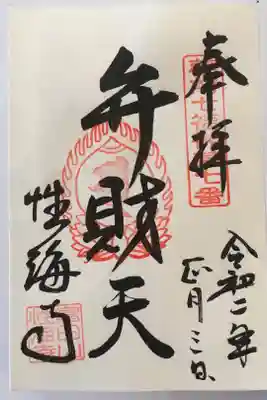 奉拝
令和二年
正月三日
弁財天
性海寺